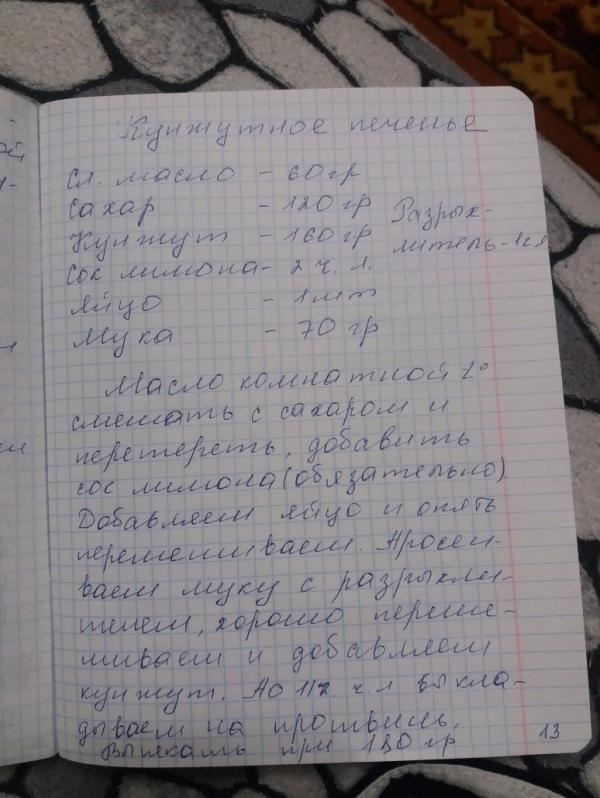 Кунжутное печенье
Сл. масло - 60 гр
Сахар - 120 гр
Разрых-
Кунжут - 160 гр
литель - 1 ч л
Сок лимона - 2 ч. л.
Яйцо - 1 шт
Мука - 70 гр
Масло комнатной t°
смешать с сахаром и
перетереть, добавить
сок лимона (обязательно).
Добавляем яйцо и опять
перемешиваем. Просеи-
ваем муку с разрыхли-
телем, хорошо переме-
шиваем и добавляем
кунжут. По 1/2 ч. л выкла-
дываем на противень.
Выпекать при 180 гр
13